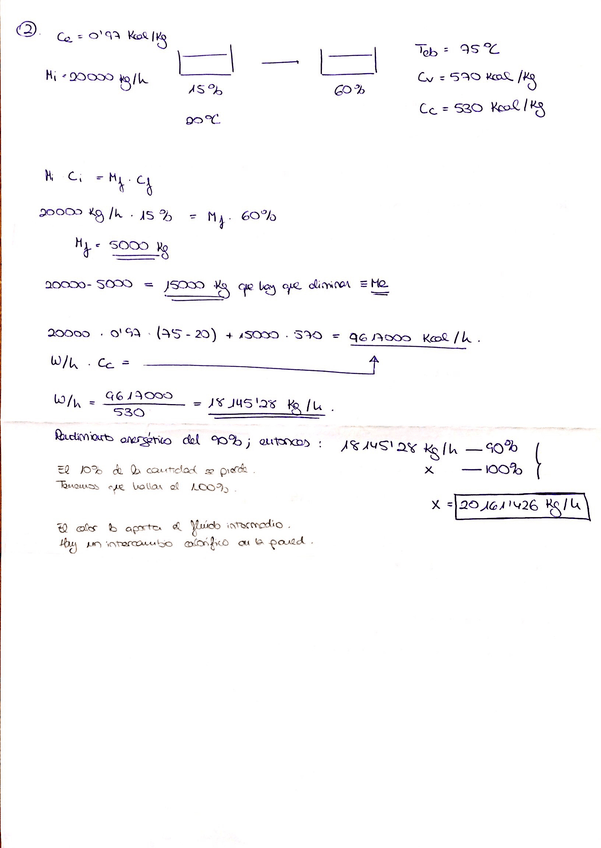 ②. Ce = 0'97 Kcal/Kg
Mi = 20000 Kg/h
15%
20ºC
60%
Teb = 75ºC
Cv = 570 Kcal/Kg
Cc = 530 Kcal/Kg
Mi Ci = Mf . Cf
20000 Kg/h . 15% = Mf . 60%
Mf = 5000 Kg
20000 - 5000 = 15000 Kg que hay que eliminar ≡ Me
20000 . 0'97 . (75 - 20) + 15000 . 570 = 9617000 Kcal/h.
W/h . Cc =
W/h = 9617000 / 530 = 18145'28 Kg/h.
Rendimiento energético del 90%; entonces: 18145'28 Kg/h — 90%
x — 100%
El 10% de la cantidad se pierde.
Tenemos que hallar el 100%.
x = 20161'1426 Kg/h
El calor lo aporta el fluido intermedio.
Hay un intercambio calorífico en la pared.